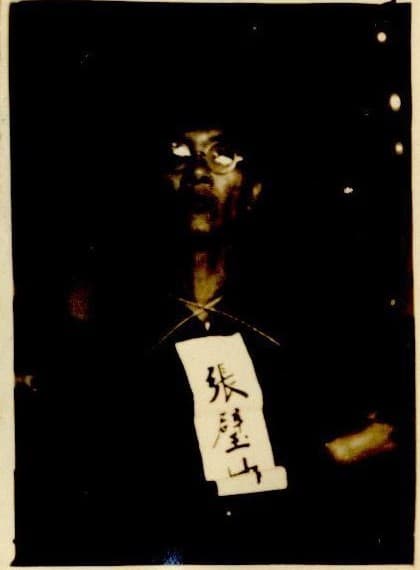 張璧山